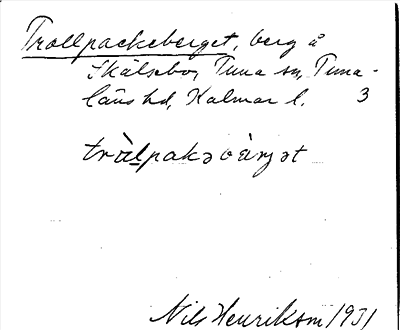 Trollpackeberget, berg å
Skälsebo, Tuna sn, Tuna-
läns hd, Kalmar l. 3
tràlpakəvàrjət
Nils Henrikson 1931